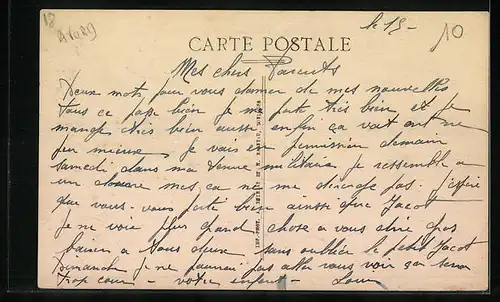 18
AVORD
le 15-
10
CARTE POSTALE
Mes chers Parents
Deux mots pour vous donner de mes nouvelles
Tous ce passe bien je me porte très bien et je
mange très bien aussi enfin ça vait on ne
peu mieux je vais en permission demain
samedi dans ma tenue militaire je ressemble a
un mes ça ne me dérange pas. J'espère
que vous-vous porté bien ainsi que Jacot
Je ne voie plus grand chose a vous dire gros
baiser a tous deux sans oublier le petit Jacot
Dimanche je ne pourrai pas aller vous voir ça sera
trop cour - votre enfant -